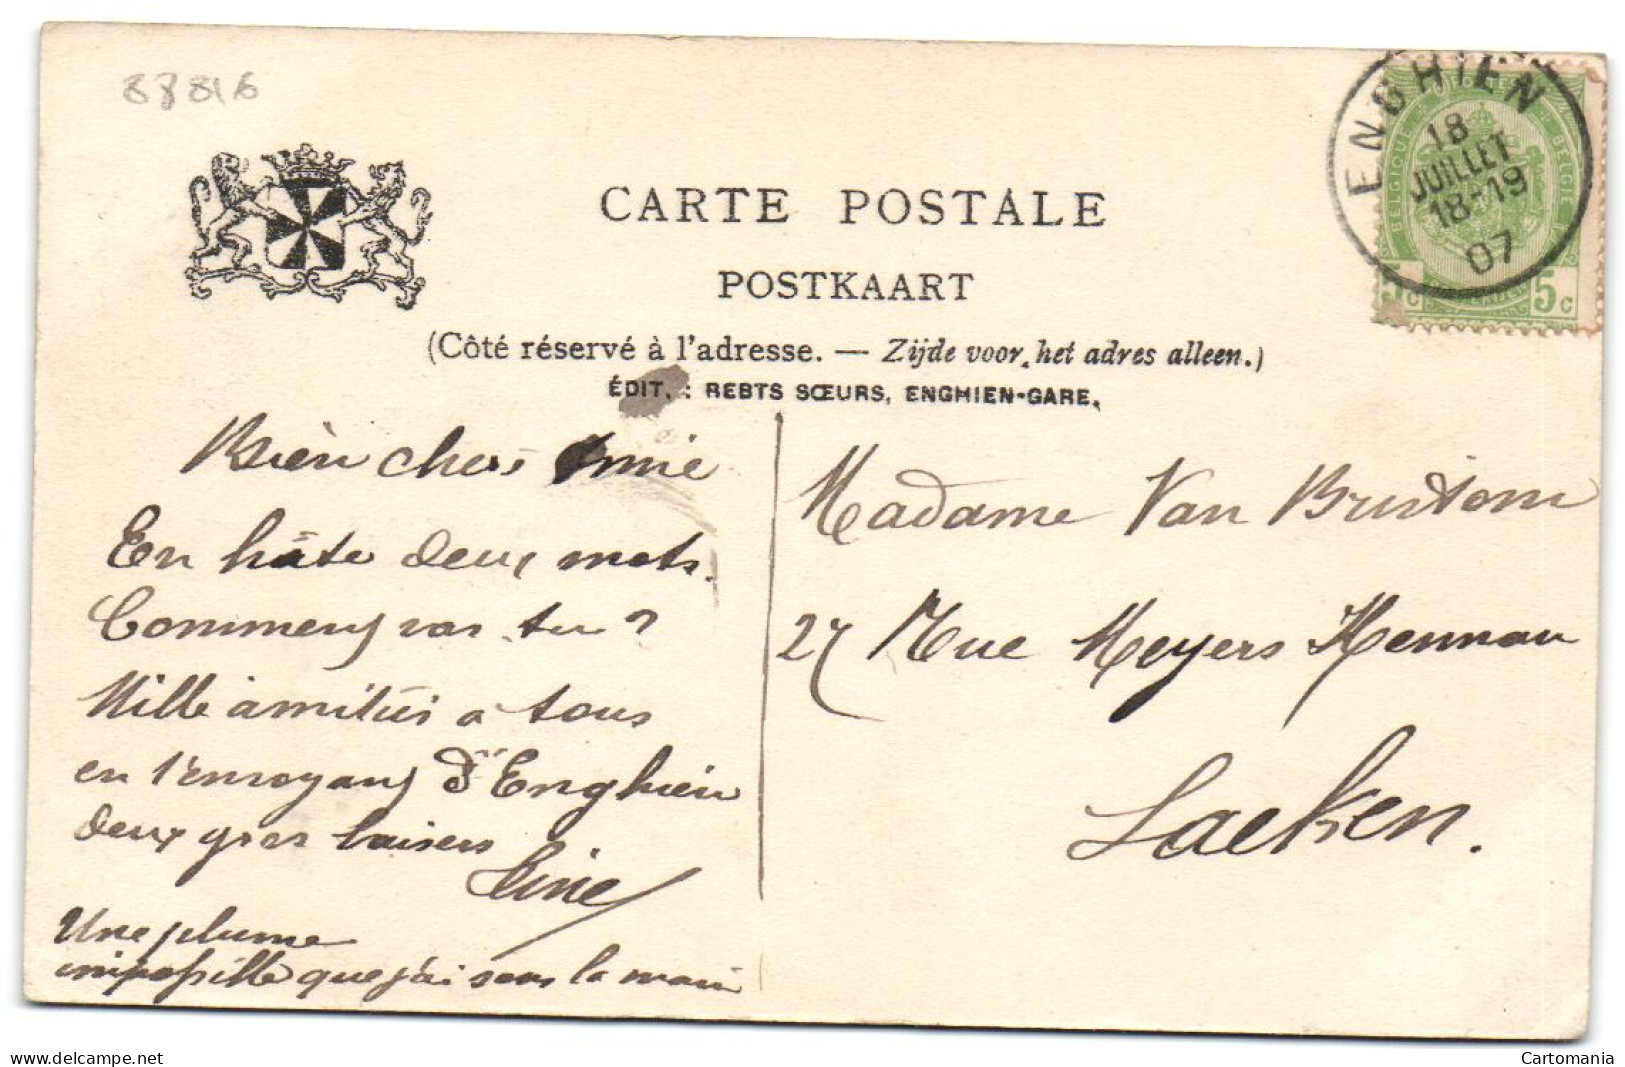 88816
ENGHIEN
18
JUILLET
18-19
07
BELGIQUE BELGIE
5c 5c
CARTE POSTALE
POSTKAART
(Côté réservé à l'adresse. — Zijde voor het adres alleen.)
ÉDIT. : REBTS SŒURS, ENGHIEN-GARE.
Bien cher Annie
En hâte deux mots.
Comment vas tu ?
Mille amitiés à tous
en t'envoyant d'Enghien
deux gros baisers
Line
Une plume
impossible que j'ai sous la main
Madame Van
27 Rue Meyers Hennau
Laeken.
delcampe.net
Cartomania